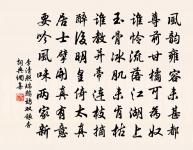 風韻雍容未甚都
尊前甘橘可為奴
誰憐流落江湖上
玉骨冰肌未肯枯
誰教並蒂連枝摘
醉後明皇倚太真
居士擘開真有意
要吟風味兩家新
李清照瑞鷓鴣雙銀杏
詞典網集